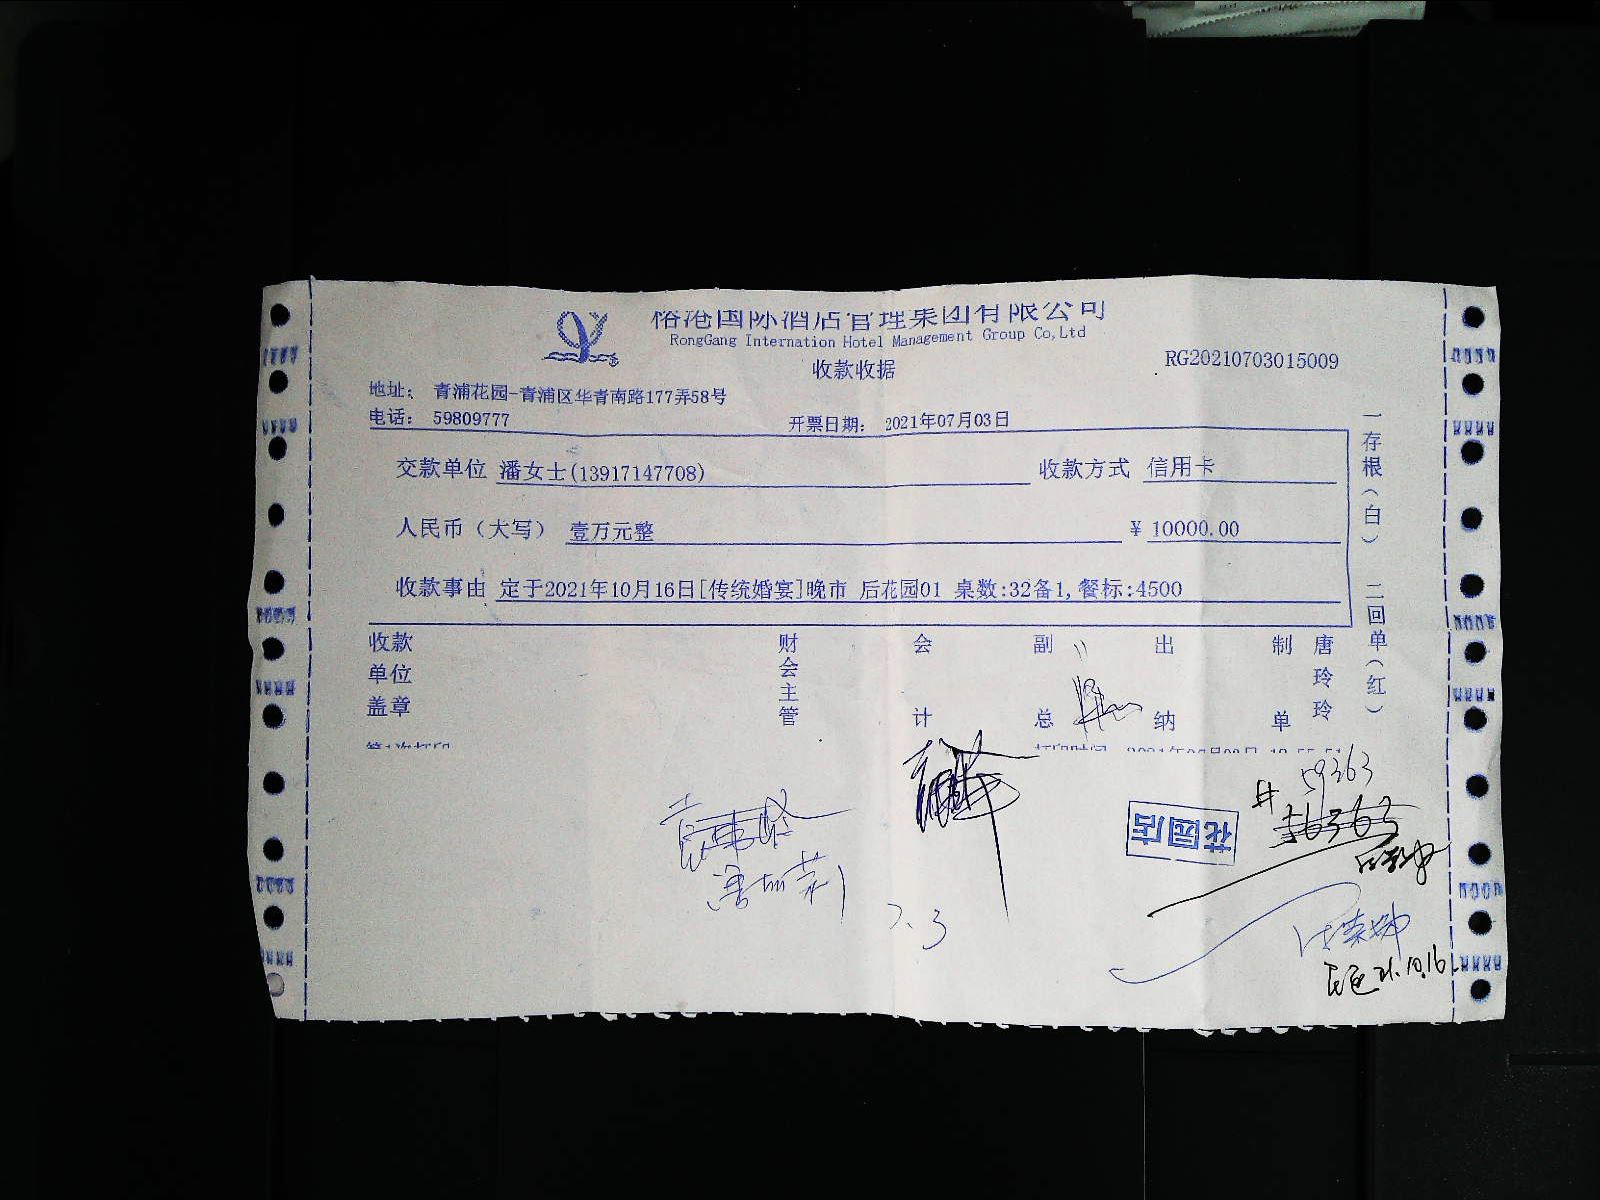 裕港国际酒店管理集团有限公司
RongGang Internation Hotel Management Group Co,Ltd
收款收据
RG20210703015009
地址： 青浦花园-青浦区华青南路177弄58号
电话： 59809777 开票日期： 2021年07月03日
交款单位 潘女士(13917147708) 收款方式 信用卡
人民币（大写） 壹万元整 ¥ 10000.00
收款事由 定于2021年10月16日[传统婚宴]晚市 后花园01 桌数:32备1,餐标:4500
收款单位盖章 财会主管 会计 副总 出纳 制单 唐玲玲
一存根（白） 二回单（红）
59363
# 56363
花园店
7.3
21.10.16